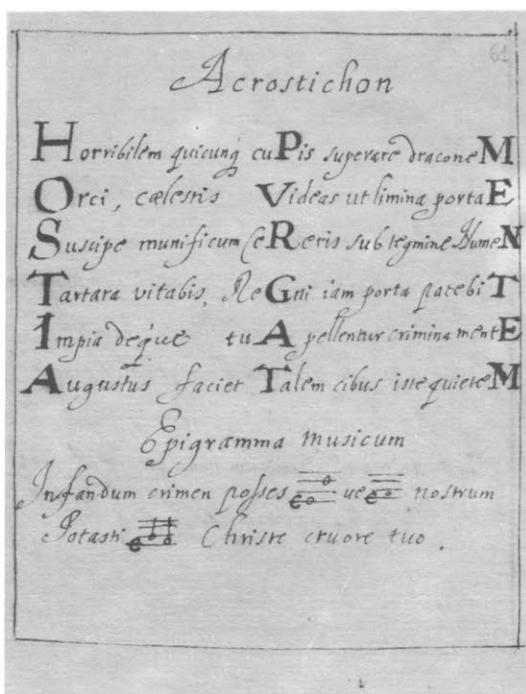 61
Acrostichon
Horribilem quicunq cuPis superare draconeM
Orci, cælestis Videas ut limina portaE
Suscipe munificum CeReris sub tegmine NumeN
Tartara vitabis, ReGni iam porta patebiT
Impia deque tuA pellentur crimina mentE
Augustus faciet Talem cibus iste quieteM
Epigramma musicum
Infandum crimen posses ue nostrum
Potasti Christe cruore tuo.